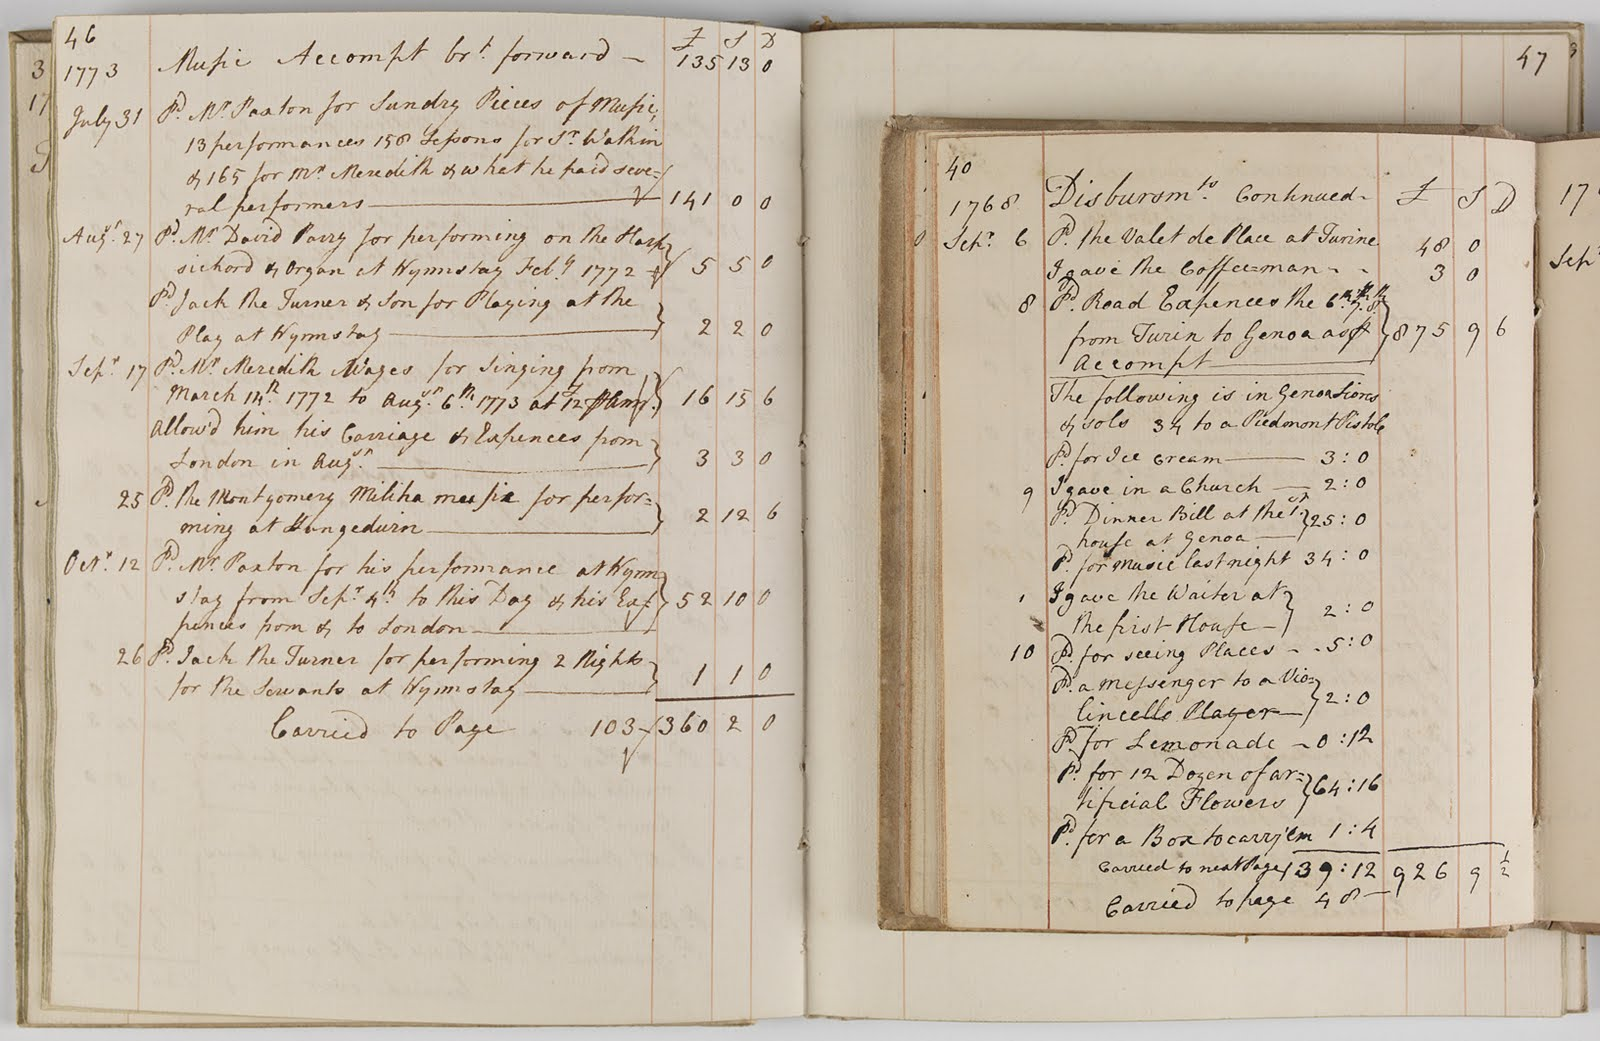 46
£ S D
1773 Music Accompt brt. forward — 135 13 0
July 31 Pd. Mr. Paxton for Sundry Pieces of Music,
13 performances 158 Lessons for Sr. Watkin
& 165 for Mr. Meredith & what he paid seve=
ral performers — 141 0 0
Augst. 27 Pd. Mr. David Parry for performing on the Harp
sichord & Organ at Wynnstay Feby. 1772 — 5 5 0
Pd. Jack the Turner & Son for Playing at the
Play at Wynnstay — 2 2 0
Sepr. 17 Pd. Mr. Meredith Wages for Singing from
March 14th. 1772 to Augst. 6th. 1773 at £12 p Ann. 16 15 6
Allow'd him his Carriage & Expences from
London in Augst. — 3 3 0
25 Pd. the Montgomery Militia music for perfor=
ming at Llangedwin — 2 12 6
Octr. 12 Pd. Mr. Paxton for his performance at Wynn
stay from Sepr. 4th. to this Day & his Ex=
pences from & to London — 52 10 0
26 Pd. Jack the Turner for performing 2 Nights
for the Servants at Wynnstay — 1 1 0
Carried to Page 103 — 360 2 0
47
40
1768 Disbursmts. Continued — £ S D
Sepr. 6 Pd. the Valet de Place at Turine 48 0
I gave the Coffee=man - - 3 0
8 Pd. Road Expences the 6th. 7th. 8th.
from Turin to Genoa as p 875 9 6
Accompt —
The following is in Genoa livres
& sols 34 to a Piedmont Pistole
Pd. for Ice Cream — 3:0
9 I gave in a Church — 2:0
Pd. Dinner Bill at the 1st.
house at Genoa — 25:0
Pd. for Music last night 34:0
I gave the Waiter at
the first House — 2:0
10 Pd. for seeing Places - - 5:0
Pd. a Messenger to a Vio=
lincello Player — 2:0
Pd. for Lemonade - 0:12
Pd. for 12 Dozen of ar=
tificial Flowers 64:16
Pd. for a Box to carry 'em 1:4
Carried to next Page 139:12 926 9 1/2
Carried to page 48 —
17
Sepr